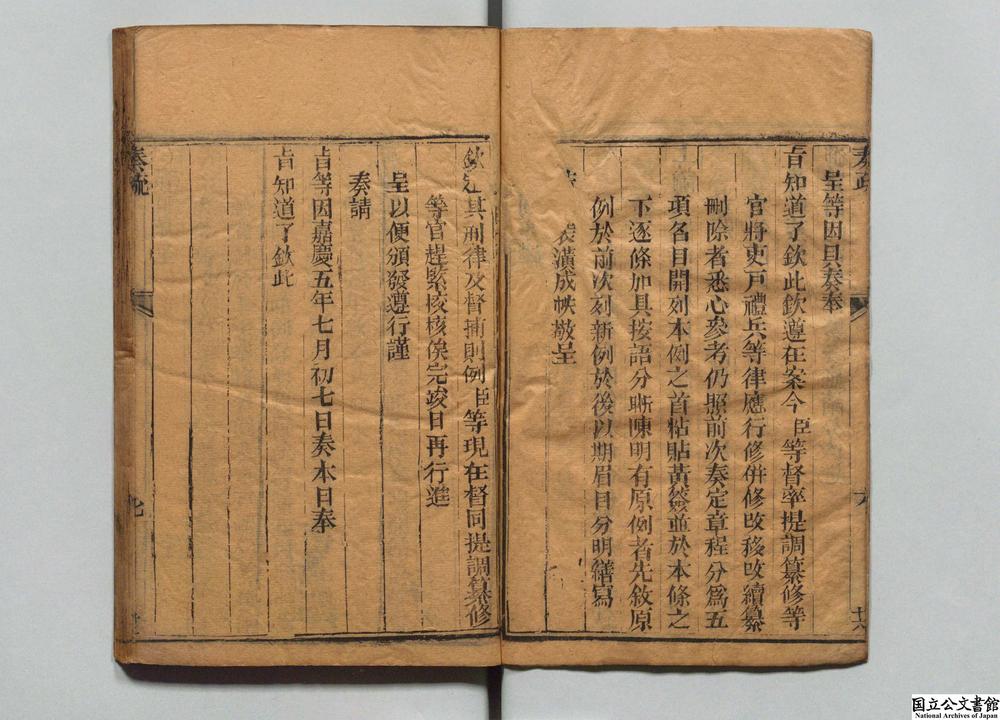 奏疏
呈等因具奏奉
旨知道了欽此欽遵在案今臣等督率提調纂修等
官將吏戶禮兵等律應行修併修改移改續纂
刪除者悉心參考仍照前次奏定章程分爲五
項名目開列本例之首粘貼黃簽並於本條之
下逐條加具按語分晰陳明有原例者先敘原
例於前次列新例於後以期眉目分明繕寫
裝潢成帙敬呈
六
欽定其刑律及督捕則例臣等現在督同提調纂修
等官趕緊核俟完竣日再行進
呈以便頒發遵行謹
奏請
旨等因嘉慶五年七月初七日奏本日奉
旨知道了欽此
奏疏
七
国立公文書館
National Archives of Japan